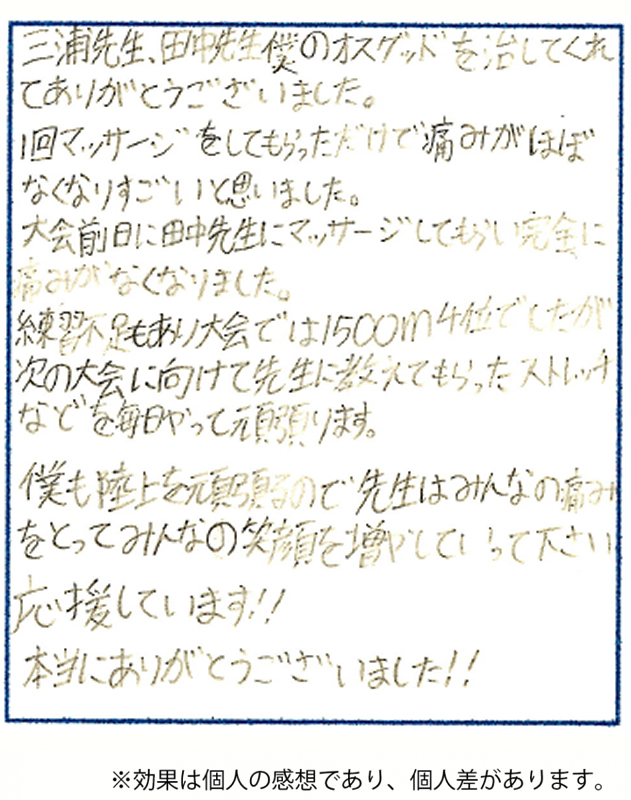 三浦先生、田中先生僕のオスグッドを治してくれ
てありがとうございました。
1回マッサージをしてもらっただけで痛みがほぼ
なくなりすごいと思いました。
大会前日に田中先生にマッサージしてもらい完全に
痛みがなくなりました。
練習不足もあり大会では1500m4位でしたが
次の大会に向けて先生に教えてもらったストレッチ
などを毎日やって頑張ります。
僕も陸上を頑張るので先生はみんなの痛み
をとってみんなの笑顔を増やしていって下さい
応援しています!!
本当にありがとうございました!!
※効果は個人の感想であり、個人差があります。